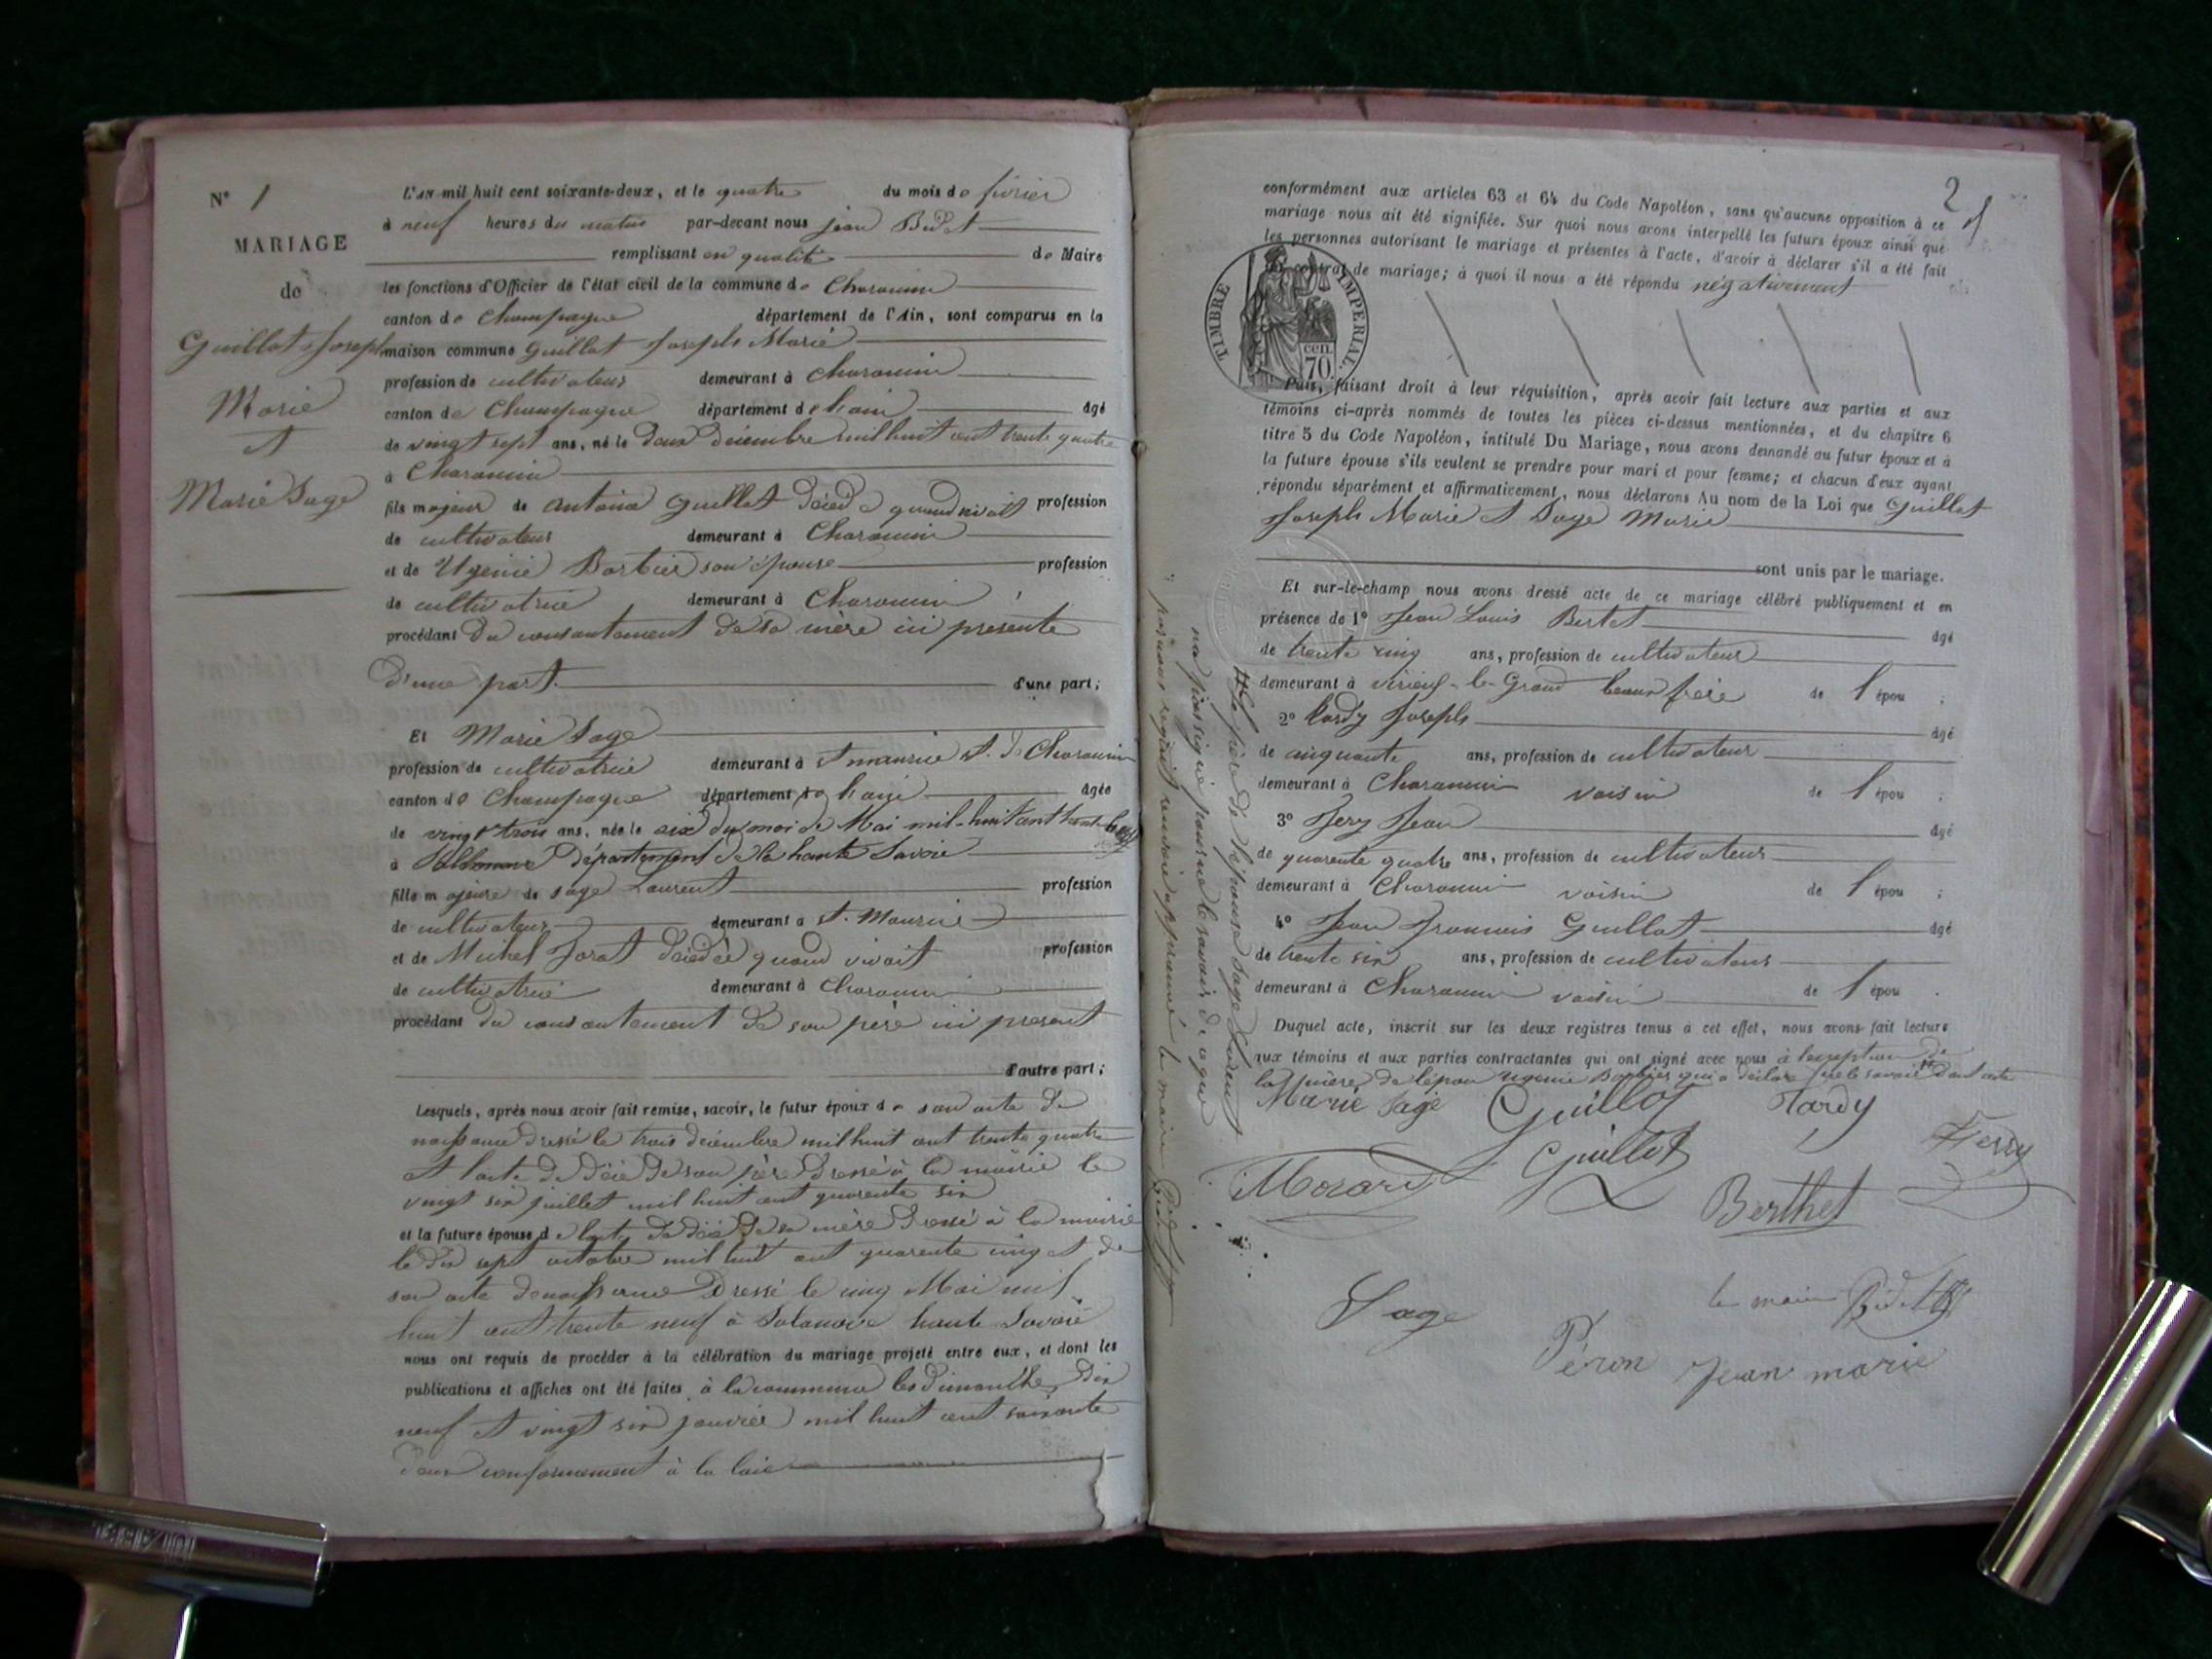 N° 1
MARIAGE
de
Guillot Joseph
Marie
et
Marie Sage
L'AN mil huit cent soixante-deux, et le quatre du mois de fevrier
à neuf heures du matin par-devant nous jean Bidet
remplissant en qualité de Maire
les fonctions d'Officier de l'état civil de la commune de Charancin
canton de Champagne département de l'Ain, sont comparus en la
maison commune Guillot Joseph Marie
profession de cultivateur demeurant à Charancin
canton de Champagne département de lain âgé
de vingt sept ans, né le deux décembre mil huit cent trente quatre
à Charancin
fils majeur de antoine Guillot décédé quand vivait profession
de cultivateur demeurant à Charancin
et de Ugenie Barbier son épouse profession
de cultivatrice demeurant à Charancin
procédant du consentement de sa mère ici presente
d'une part. d'une part;
Et Marie Sage
profession de cultivatrice demeurant à St maurice St. de Charancin
canton de Champagne département de lain âgée
de vingt trois ans, née le six du moi de Mai mil-huit cent trente
à département de la haute Savoie
fille majeure de sage Laurent profession
de cultivateur demeurant à St. Maurice
et de Michel Forat décédée quand vivait profession
de cultivatrice demeurant à Charancin
procédant du consentement de son père ici present
d'autre part;
Lesquels, après nous avoir fait remise, savoir, le futur époux de son acte de
naissance dressé le trois décembre mil huit cent trente quatre
et l'acte de décé de son père dressé à la mairie le
vingt six juillet mil huit cent quarente six
et la future épouse de l'acte de décé de sa mère dressé à la mairie
le dix sept octobre mil huit cent quarente cinq et de
son acte de naissance dressé le cinq Mai mil
huit cent trente neuf à Salanove haute Savoie
nous ont requis de procéder à la célébration du mariage projeté entre eux, et dont les
publications et affiches ont été faites à la commune les dimanche dix
neuf et vingt six janvier mil huit cent soixante
deux conformement à la loie
2
conformément aux articles 63 et 64 du Code Napoléon, sans qu'aucune opposition à ce
mariage nous ait été signifiée. Sur quoi nous avons interpellé les futurs époux ainsi que
les personnes autorisant le mariage et présentes à l'acte, d'avoir à déclarer s'il a été fait
contrat de mariage; à quoi il nous a été répondu négativement
TIMBRE IMPERIAL
70 cen.
Puis, faisant droit à leur réquisition, après avoir fait lecture aux parties et aux
témoins ci-après nommés de toutes les pièces ci-dessus mentionnées, et du chapitre 6
titre 5 du Code Napoléon, intitulé Du Mariage, nous avons demandé au futur époux et à
la future épouse s'ils veulent se prendre pour mari et pour femme; et chacun d'eux ayant
répondu séparément et affirmativement, nous déclarons Au nom de la Loi que Guillot
Joseph Marie et Sage Marie
sont unis par le mariage.
Et sur-le-champ nous avons dressé acte de ce mariage célébré publiquement et en
présence de 1° Jean Louis Bertet âgé
de trente cinq ans, profession de cultivateur
demeurant à virieux-le-Grand beaux frère de l'épou ;
2° tardy Joseph âgé
de cinquante ans, profession de cultivateur
demeurant à Charancin voisin de l'épou ;
3° Fery Jean âgé
de quarente quatre ans, profession de cultivateur
demeurant à Charancin voisin de l'épou ;
4° Jean François Guillot âgé
de trente six ans, profession de cultivateur
demeurant à Charancin voisin de l'épou .
Duquel acte, inscrit sur les deux registres tenus à cet effet, nous avons fait lecture
aux témoins et aux parties contractantes qui ont signé avec nous à l'exception de
la mère de l'épou ugenie Barbier qui a déclaré ne le savoir dont acte
le père de l'épouse Sage Laurent
na pas signé pour ne le savoir de ce que
renvoie approuvé le maire Bidet
Marie Sage Guillot Tardy
Morard Guillot Ferry
Berthet
Sage le maire Bidet
Péron Jean marie